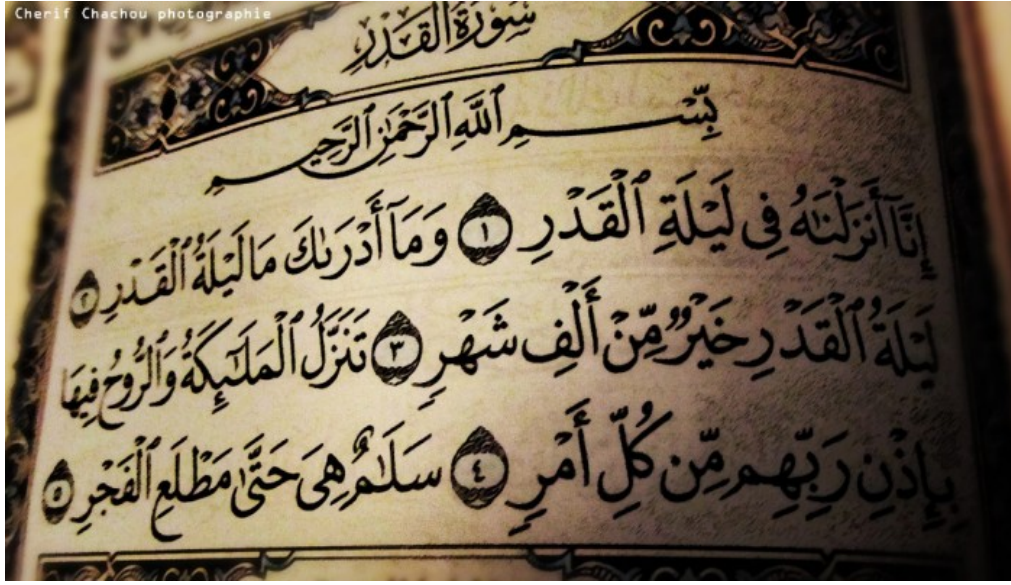 Cherif Chachou photographie
سُورَةُ الْقَدْرِ
بِسْمِ ٱللَّهِ ٱلرَّحْمَٰنِ ٱلرَّحِيمِ
إِنَّآ أَنزَلْنَٰهُ فِى لَيْلَةِ ٱلْقَدْرِ ١ وَمَآ أَدْرَىٰكَ مَا لَيْلَةُ ٱلْقَدْرِ ٢
لَيْلَةُ ٱلْقَدْرِ خَيْرٌ مِّنْ أَلْفِ شَهْرٍ ٣ تَنَزَّلُ ٱلْمَلَٰٓئِكَةُ وَٱلرُّوحُ فِيهَا
بِإِذْنِ رَبِّهِم مِّن كُلِّ أَمْرٍ ٤ سَلَٰمٌ هِىَ حَتَّىٰ مَطْلَعِ ٱلْفَجْرِ ٥